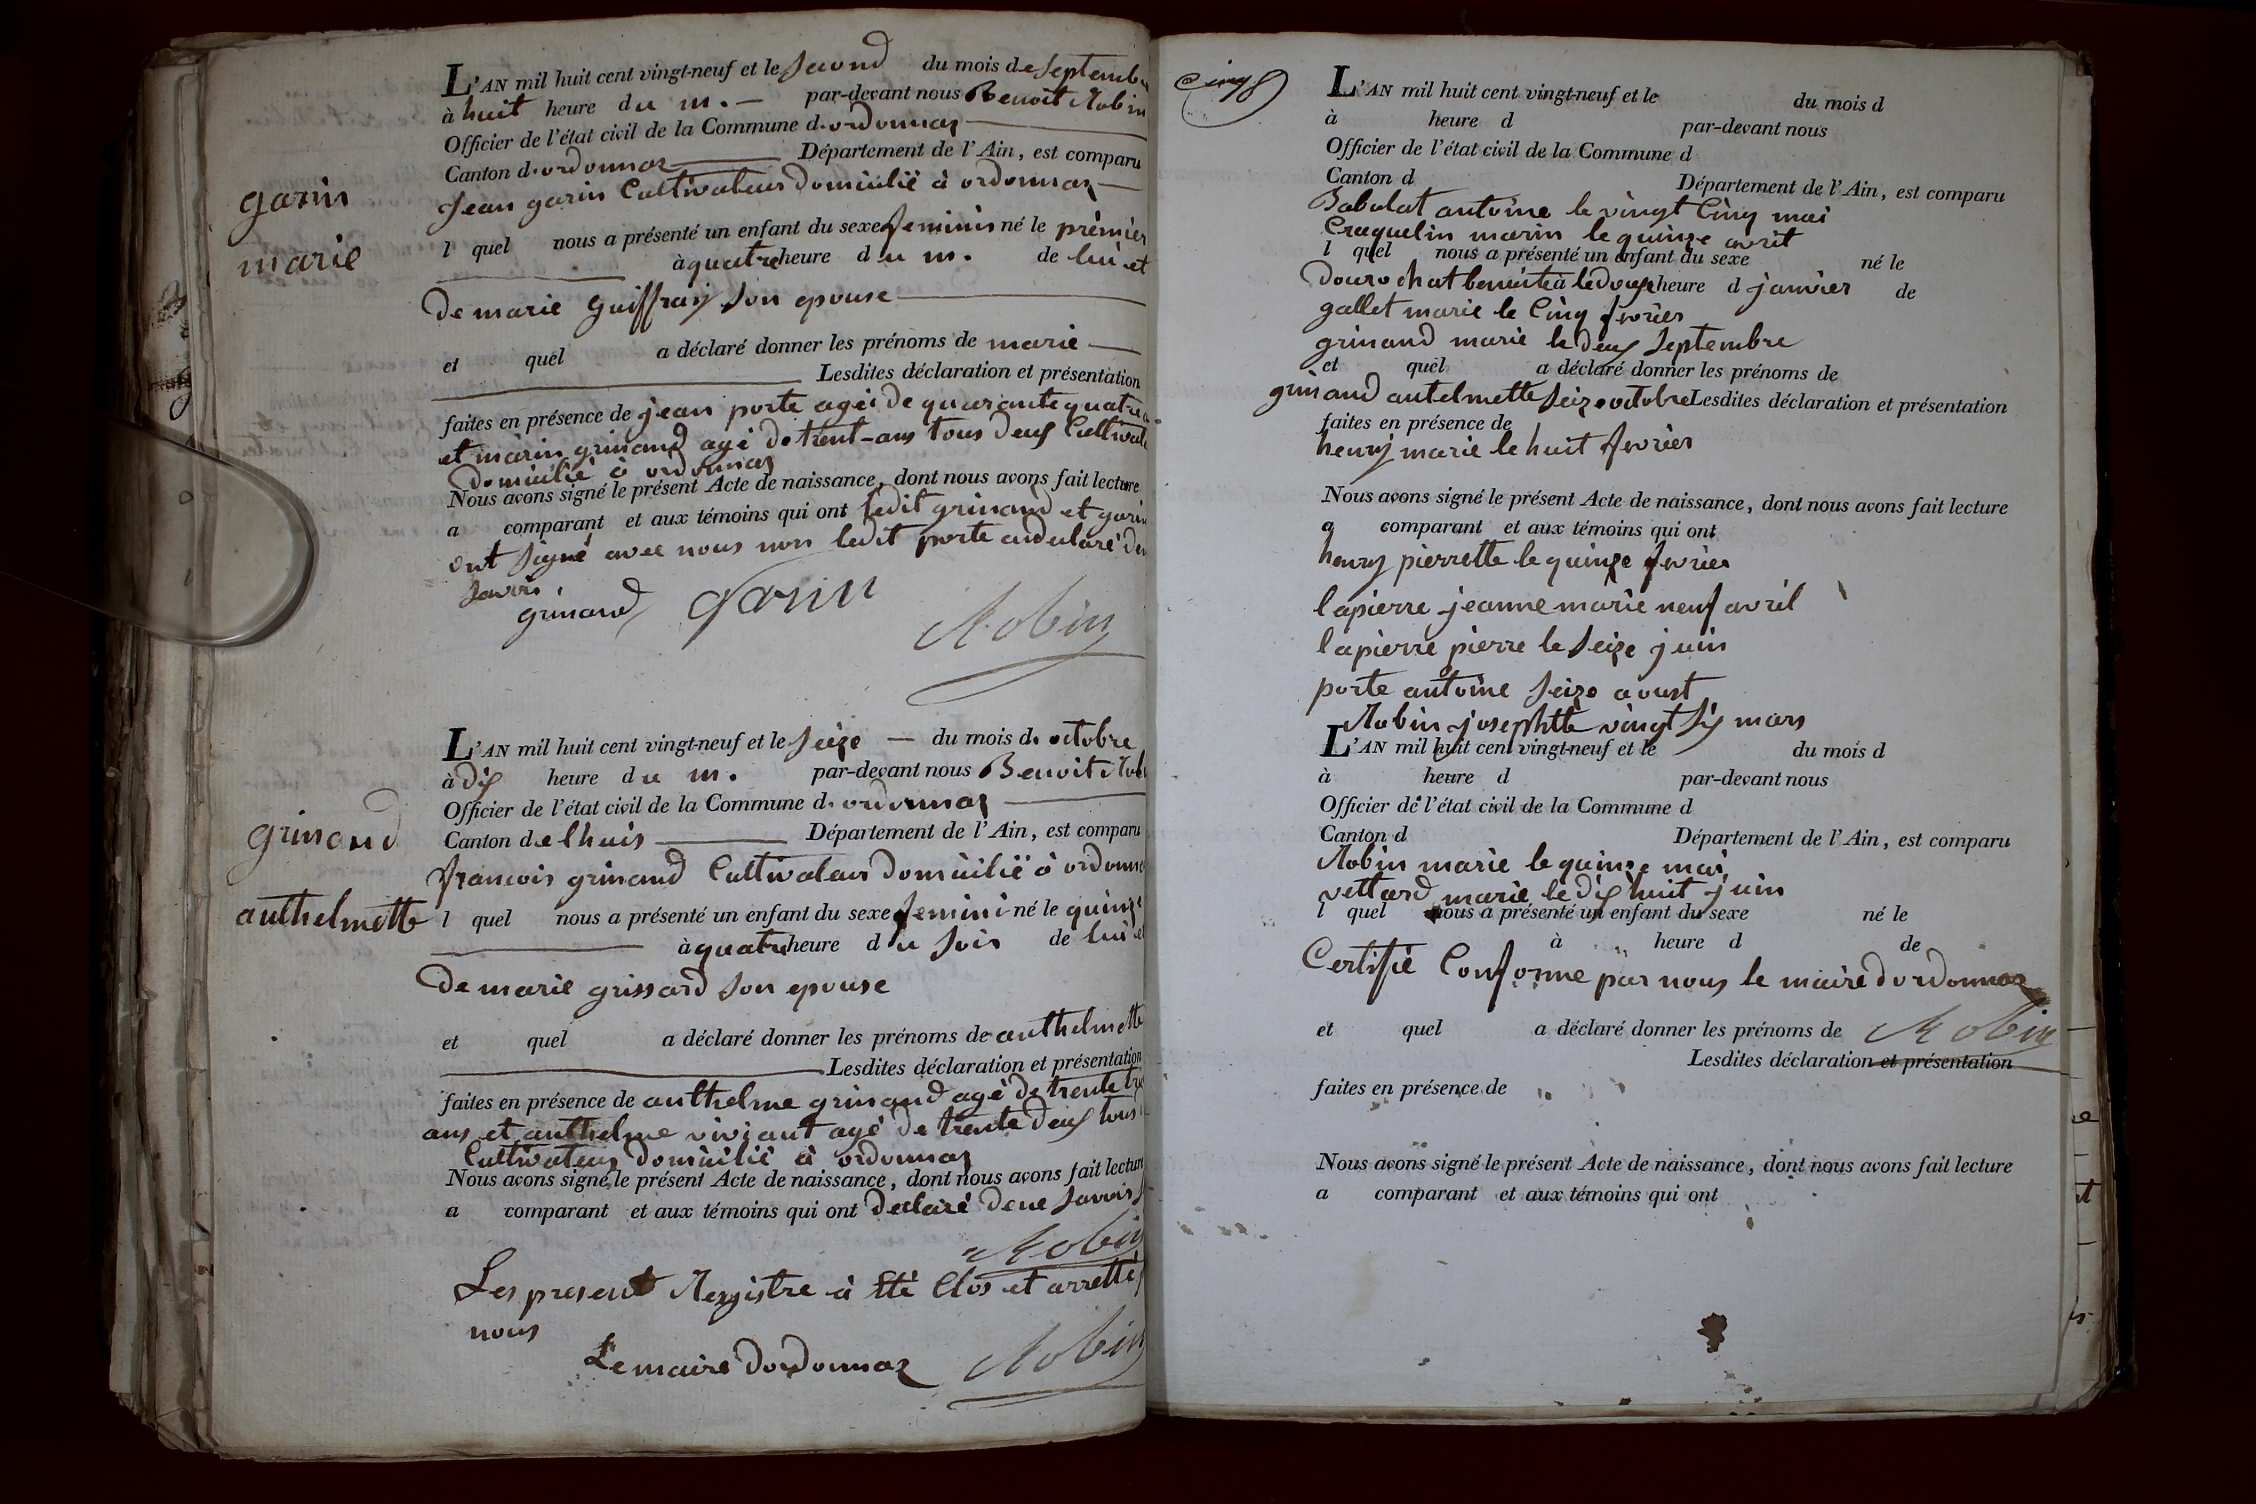 L'AN mil huit cent vingt-neuf et le second du mois de septembre
à huit heure du m. — par-devant nous Benoit Robin
Officier de l'état civil de la Commune d. ordonnaz
Canton d. ordonnaz Département de l'Ain, est comparu
jean garin Cultivateur domicilié à ordonnaz
garin
marie
l quel nous a présenté un enfant du sexe feminin né le prémier
à quatre heure du m. de lui et
de marie guiffray son epouse
et quel a déclaré donner les prénoms de marie
Lesdites déclaration et présentation
faites en présence de jean porte agé de quarante quatre
et marin grinand agé de trent-ans tous deux Cultivate
domicilié à ordonnaz
Nous avons signé le présent Acte de naissance, dont nous avons fait lecture
a comparant et aux témoins qui ont ledit grinand et garin
ont signé avec nous non ledit porte a declaré de
savoir
grinand garin
Robin
L'AN mil huit cent vingt-neuf et le seize — du mois d. octobre
à dix heure du m. par-devant nous Benoit Rob
Officier de l'état civil de la Commune d. ordonnaz
Canton de lhuis Département de l'Ain, est comparu
francois grinand Cultivateur domicilié à ordonna
grinand
anthelmette
l quel nous a présenté un enfant du sexe femini né le quinze
à quatre heure du soir de lui et
de marie grissard son epouse
et quel a déclaré donner les prénoms de anthelmette
Lesdites déclaration et présentation
faites en présence de anthelme grinand agé de trente tro
ans et anthelme viviant agé de trente deux tous
Cultivateur domicilié à ordonnaz
Nous avons signé le présent Acte de naissance, dont nous avons fait lecture
a comparant et aux témoins qui ont declaré dene savoir
Robin
Les present Registre à été Clos et arretté
nous
Le maire dordonnaz Robin
Cinq
L'AN mil huit cent vingt-neuf et le du mois d
à heure d par-devant nous
Officier de l'état civil de la Commune d
Canton d Département de l'Ain, est comparu
Babolat antoine le vingt Cinq mai
Craquelin marin le quinze avril
l quel nous a présenté un enfant du sexe né le
douro chat benoite à le douze heure d janvier de
gallet marie le Cinq fevrier
grinand marie le deux septembre
et quel a déclaré donner les prénoms de
grinand antelmette seize octobre Lesdites déclaration et présentation
faites en présence de
henry marie le huit fevrier
Nous avons signé le présent Acte de naissance, dont nous avons fait lecture
a comparant et aux témoins qui ont
henry pierrette le quinze fevrier
lapierre jeanne marie neuf avril
lapierre pierre le seize juin
porte antoine seize aoust
Robin josephtte vingt six mars
L'AN mil huit cent vingt-neuf et le du mois d
à heure d par-devant nous
Officier de l'état civil de la Commune d
Canton d Département de l'Ain, est comparu
Robin marie le quinze mai
vettard marie le dix huit juin
l quel nous a présenté un enfant du sexe né le
à heure d de
Certifié Conforme par nous le maire dordonnaz
et quel a déclaré donner les prénoms de Robin
Lesdites déclaration et présentation
faites en présence de
Nous avons signé le présent Acte de naissance, dont nous avons fait lecture
a comparant et aux témoins qui ont